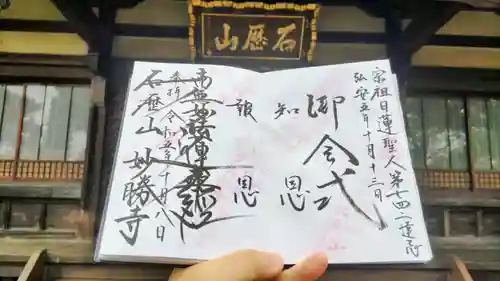 石歴山
宗祖日蓮聖人第七四二遠忌
弘安五年十月十三日
御会式
知恩
報恩
南無妙法蓮華経
奉拝 令和五年十月八日
石歴山 妙勝寺